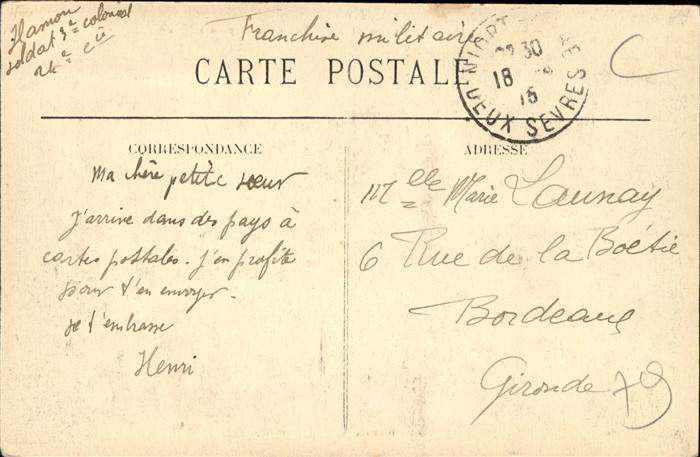 Hamon
soldat 3e colonial
24e Cie
Franchise militaire
CARTE POSTALE
NIORT GARE
30
18
15
DEUX SEVRES
CORRESPONDANCE
ADRESSE
Ma chère petite soeur
J'arrive dans des pays à
cartes postales. j'en profite
pour t'en envoyer.
Je t'embrasse
Henri
Mlle Marie Launay
6 Rue de la Boétie
Bordeaux
Gironde